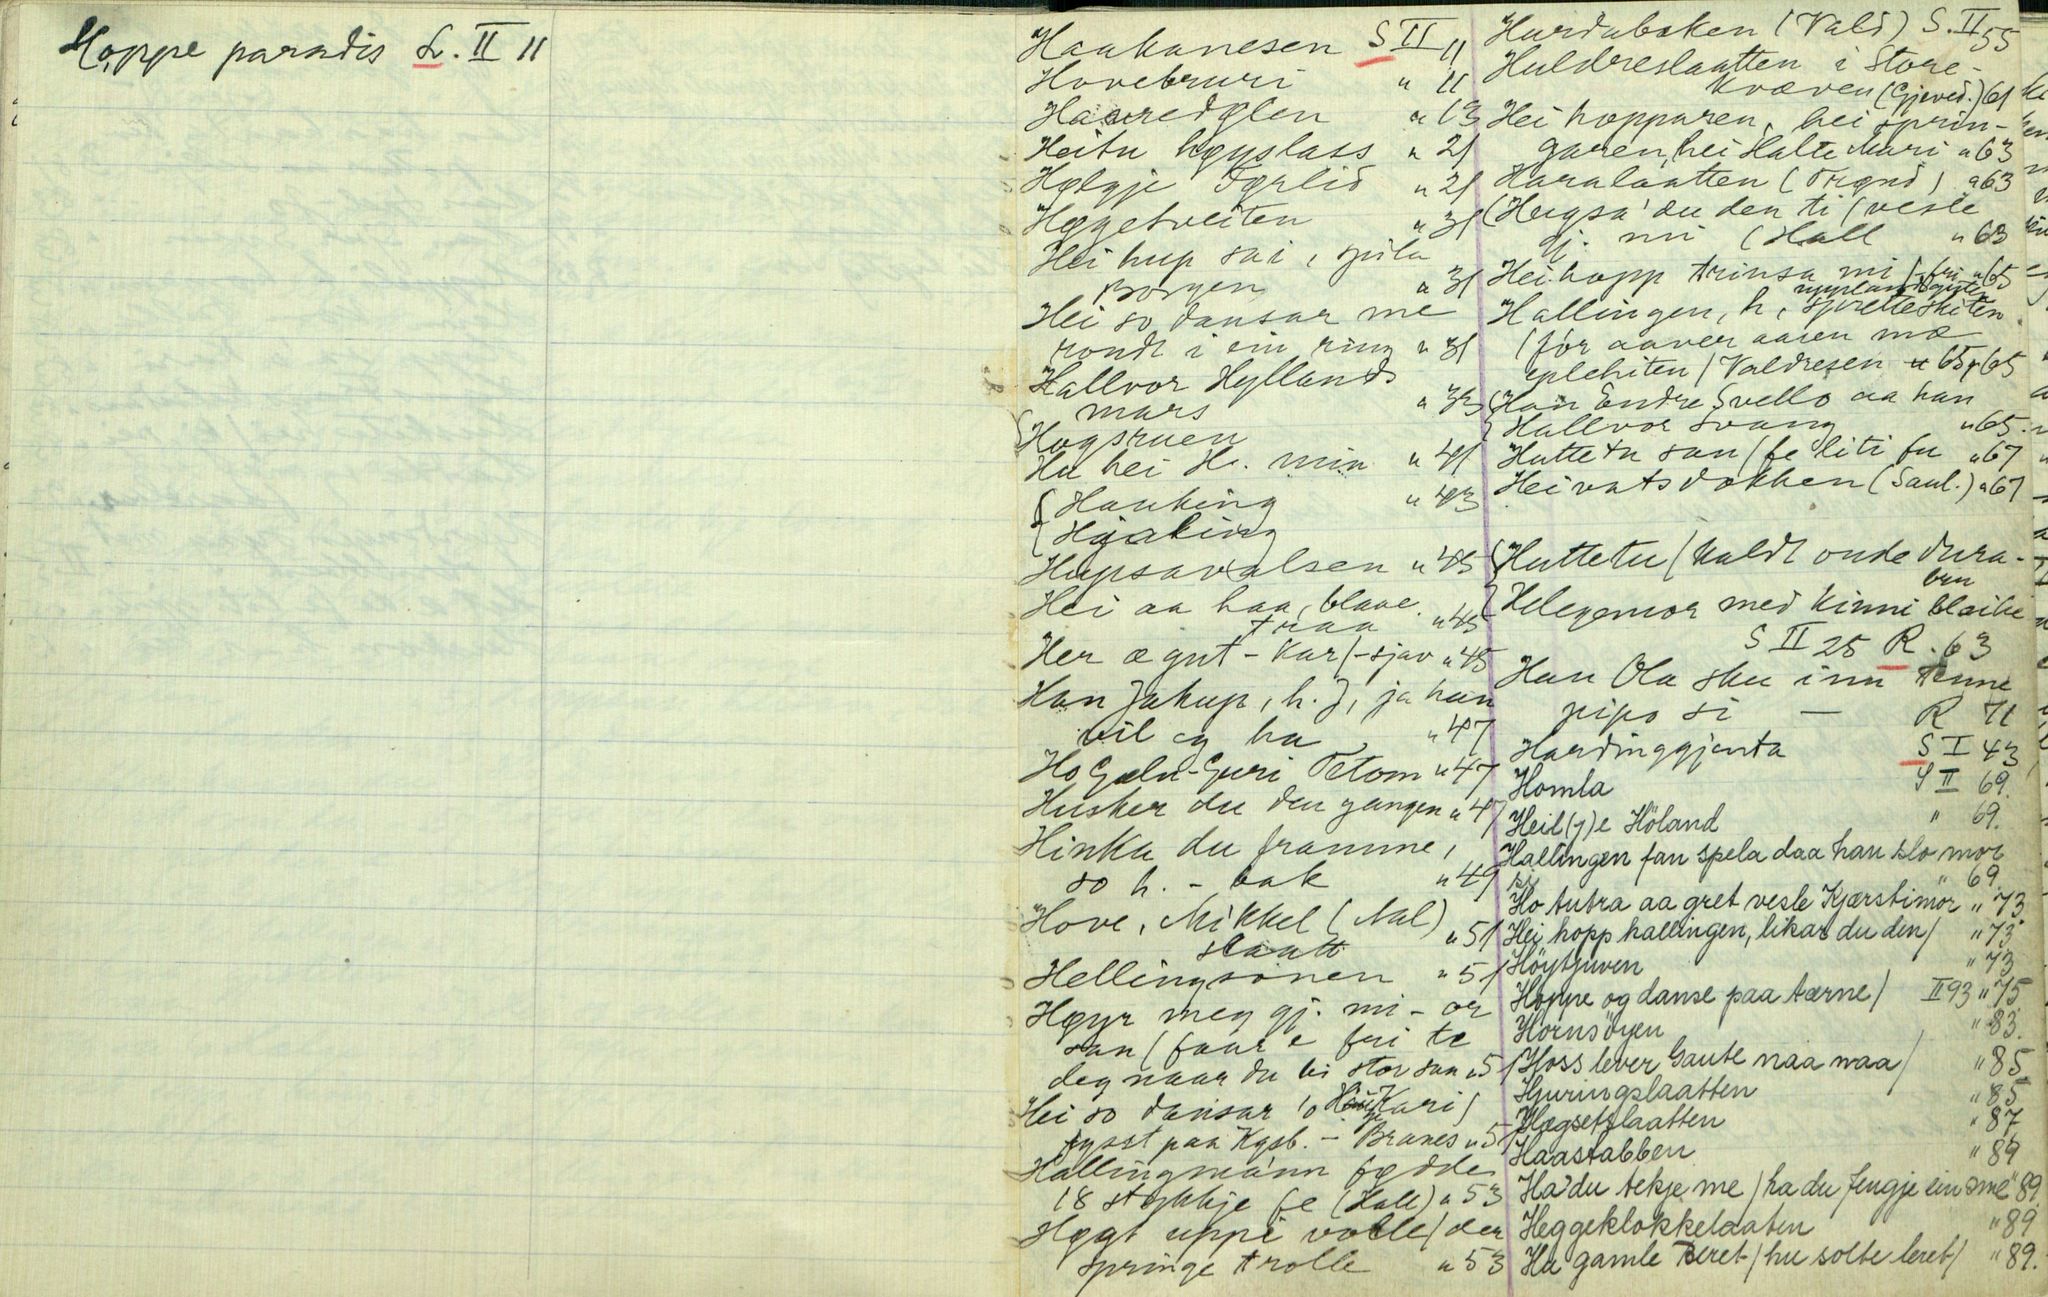 Hoppe paradis L. II 11
Haakanesen S II 11
Hovebruri " 11
Haaredølen " 13
Heitu høyslass " 21
Hølgje Førlid " 21
Høgetveiten " 31
Hei hup sai, spela
Borgen " 31
Hei so dansar me
rondt i ein ring " 31
Hallvor Hyllands
mars " 33
Hogsruen
Hu hei H. min " 41
Hauking " 43
Hjaking
Hupsavalsen " 45
Hei aa haa, blaae
traa " 45
Her æ gut - kar/-sjav " 45
Han Jakup, h. J, ja han
vil eg ha " 47
Ho Galn-Guri Tetom " 47
Husker du den gangen " 47
Hinka du framme,
so h. - bak " 49
Hove, Mikkel (Nal)
slaatt " 51
Hellingsonen " 51
Høyr meg gj. mi - or
san (faar e fri te
deg naar du bi stor san " 51
Hei so dansar 'o Kari/
tysst paa Kgsb. - Branes " 51
Hallingmann fødde
18 stykkje fe (Hall) " 53
Høgt uppi volle/der
springe trolle " 53
Hurdabaken (Vald) S. II 55
Huldreslaatten i Store-
Kvæven (Gjøvd.) 61
Hei hopparen, hei sprin-
garen, hei Halte Mari " 63
Haralaatten (Trønd) " 63
(Hugsa' du den ti (vesle
gj. mi (Hall " 63
Hei hopp trinsa mi / fri " 65
Hallingen, h, spretteskiten
(for aaver aasen mæ
eplekiten / Valdresen " 65, 65
Han Endre Svello aa han
Hallvor Svang " 65
Huttetu san / fe liti fu " 67
Heivatsdokken (Saul.) " 67
Huttetu / kaldt onde dura-
bru
Helegemor med kinni bleike
S II 25 R. 63
Han Ola sku inn tenne
pipo si — R 71
Hardinggjenta S I 43
Homla S II 69.
Heil(j)e Höland " 69.
Hallingen fan spela daa han slo mor
si " 69.
Ho tutra aa gret vesle Kjærstimor " 73
Hei hopp hallingen, likar du den/ " 73
Höytjuven " 73
Hoppe og danse paa tærne/ II 93 " 75
Hornsöyen " 83.
Hoss lever Gaute naa naa/ " 85
Hjuringslaatten " 85
Høgsetslaatten " 87
Haastabben " 89
Ha'du tekje me / ha du fengje ein smé " 89
Heggeklokkelaaten " 89
Hu gamle Beret / hu solte leret / " 89.